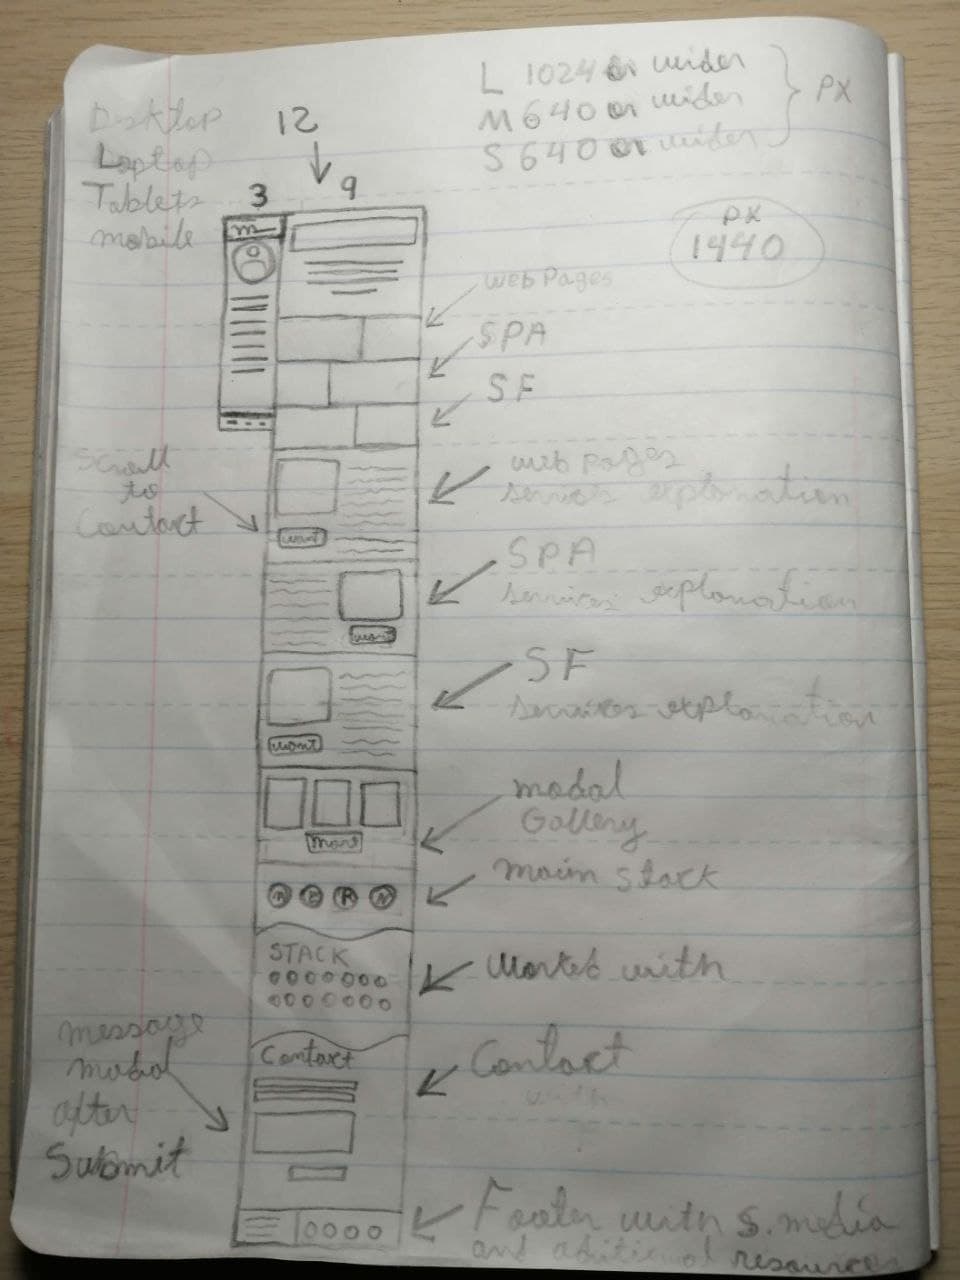 Desktop
Laptop
Tablets
mobile
12
L 1024 or wider
M 640 or wider
S 640 or wider
PX
3
9
PX
1440
m
web Pages
SPA
SF
Scroll
to
Contact
web pages
explanation
want
SPA
services explanation
want
SF
services explanation
want
modal
Gallery
more
main stack
M E R N
STACK
Worked with
message
modal
after
Submit
Contact
Contact
with
Footer with s. media
and aditional resources